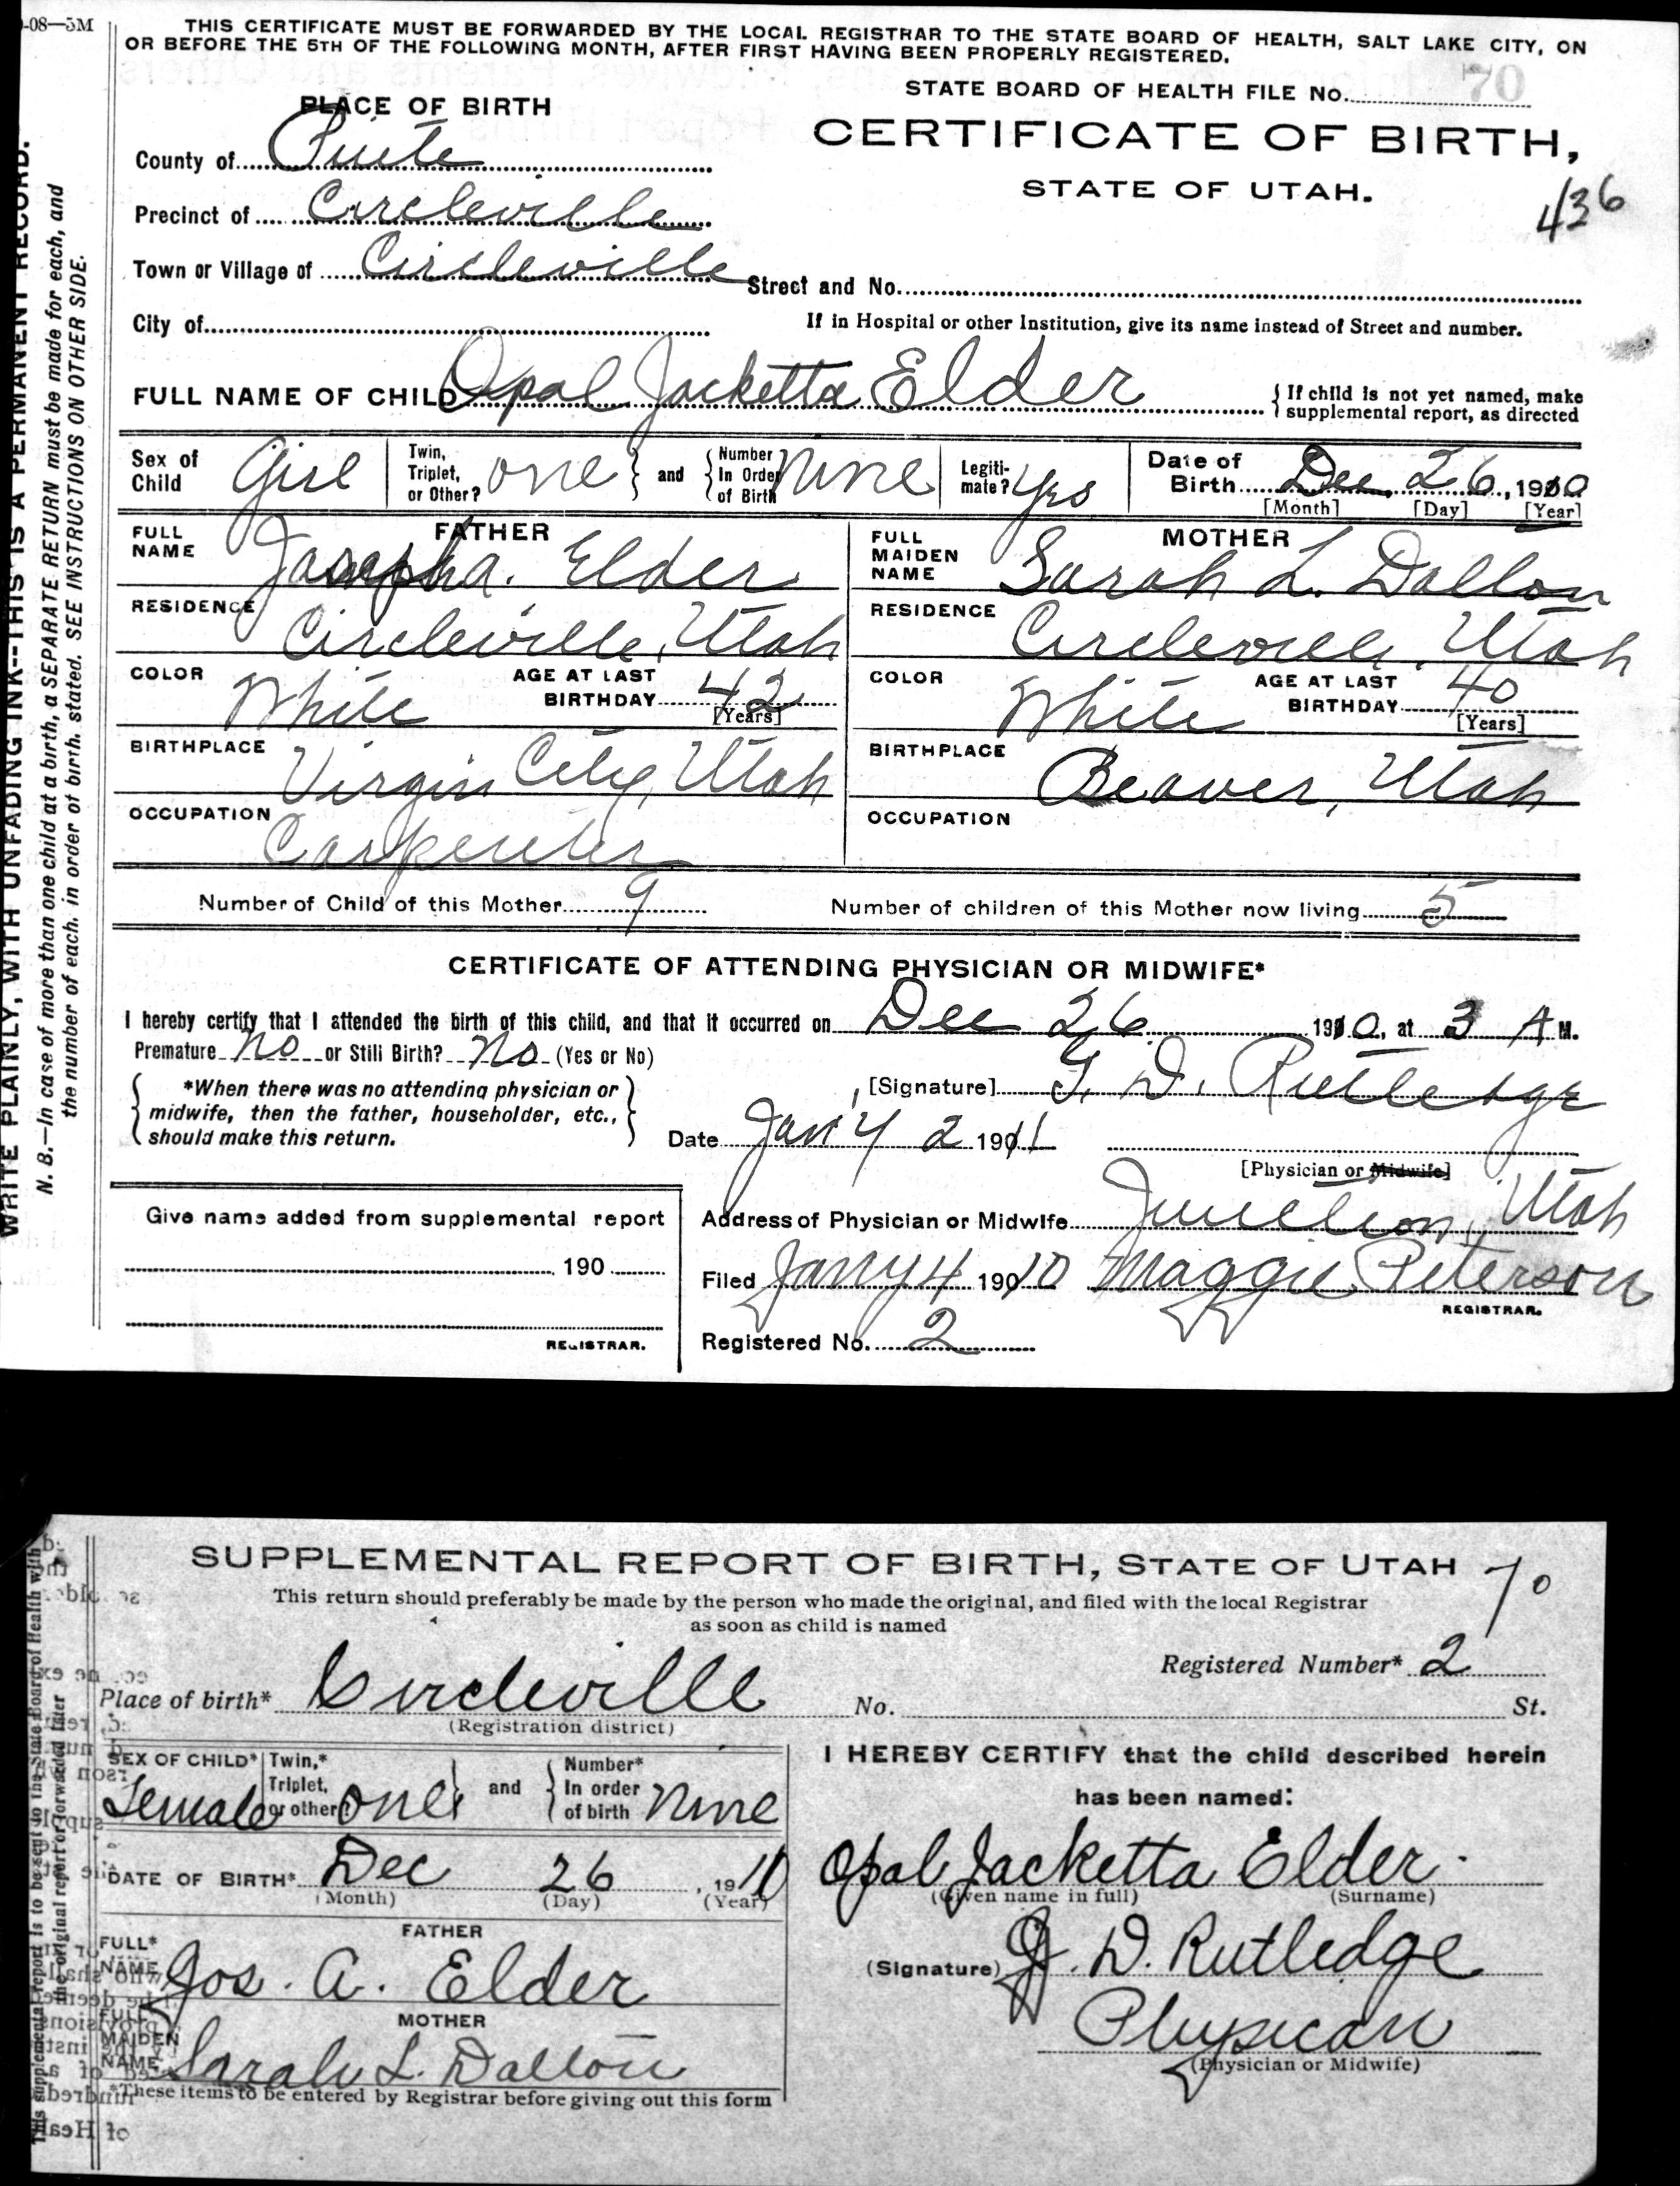 -08—5M
THIS CERTIFICATE MUST BE FORWARDED BY THE LOCAL REGISTRAR TO THE STATE BOARD OF HEALTH, SALT LAKE CITY, ON
OR BEFORE THE 5TH OF THE FOLLOWING MONTH, AFTER FIRST HAVING BEEN PROPERLY REGISTERED.
STATE BOARD OF HEALTH FILE No. 70
PLACE OF BIRTH
CERTIFICATE OF BIRTH,
STATE OF UTAH.
436
County of Piute
Precinct of Circleville
Town or Village of Circleville Street and No.
City of
If in Hospital or other Institution, give its name instead of Street and number.
FULL NAME OF CHILD Opal Jacketta Elder { If child is not yet named, make
supplemental report, as directed
Sex of Child Girl Twin, Triplet, or Other? one } and { Number In Order of Birth Nine Legiti-mate? Yes Date of Birth Dec. 26, 1910
[Month] [Day] [Year]
FATHER
FULL NAME Joseph a. Elder
RESIDENCE Circleville, Utah
COLOR White AGE AT LAST BIRTHDAY 42 [Years]
BIRTHPLACE Virgin City, Utah
OCCUPATION Carpenter
MOTHER
FULL MAIDEN NAME Sarah L. Dalton
RESIDENCE Circleville, Utah
COLOR White AGE AT LAST BIRTHDAY 40 [Years]
BIRTHPLACE Beaver, Utah
OCCUPATION
Number of Child of this Mother 9 Number of children of this Mother now living 5
CERTIFICATE OF ATTENDING PHYSICIAN OR MIDWIFE*
I hereby certify that I attended the birth of this child, and that it occurred on Dec 26 1910, at 3 A M.
Premature No or Still Birth? No (Yes or No)
{ *When there was no attending physician or
midwife, then the father, householder, etc.,
should make this return. }
[Signature] G. D. Rutledge
Date Jan'y 2 1911
[Physician or Midwife]
Give name added from supplemental report
190
REGISTRAR.
Address of Physician or Midwife Junction, Utah
Filed Jany 4 19010 Maggie Peterson
REGISTRAR.
Registered No. 2
WRITE PLAINLY, WITH UNFADING INK--THIS IS A PERMANENT RECORD.
N. B.—In case of more than one child at a birth, a SEPARATE RETURN must be made for each, and
the number of each, in order of birth, stated. SEE INSTRUCTIONS ON OTHER SIDE.
SUPPLEMENTAL REPORT OF BIRTH, STATE OF UTAH 70
This return should preferably be made by the person who made the original, and filed with the local Registrar
as soon as child is named
Registered Number* 2
Place of birth* Circleville No. St.
(Registration district)
SEX OF CHILD* Female Twin,* Triplet, or other? one } and { Number* In order of birth Nine
DATE OF BIRTH* Dec 26, 1910
(Month) (Day) (Year)
FATHER
FULL* NAME Jos. A. Elder
MOTHER
FULL MAIDEN NAME* Sarah L. Dalton
*These items to be entered by Registrar before giving out this form
I HEREBY CERTIFY that the child described herein
has been named:
Opal Jacketta Elder
(Given name in full) (Surname)
(Signature) G. D. Rutledge
Physican
(Physician or Midwife)
This supplemental report is to be sent to the State Board of Health with
the original report or forwarded later